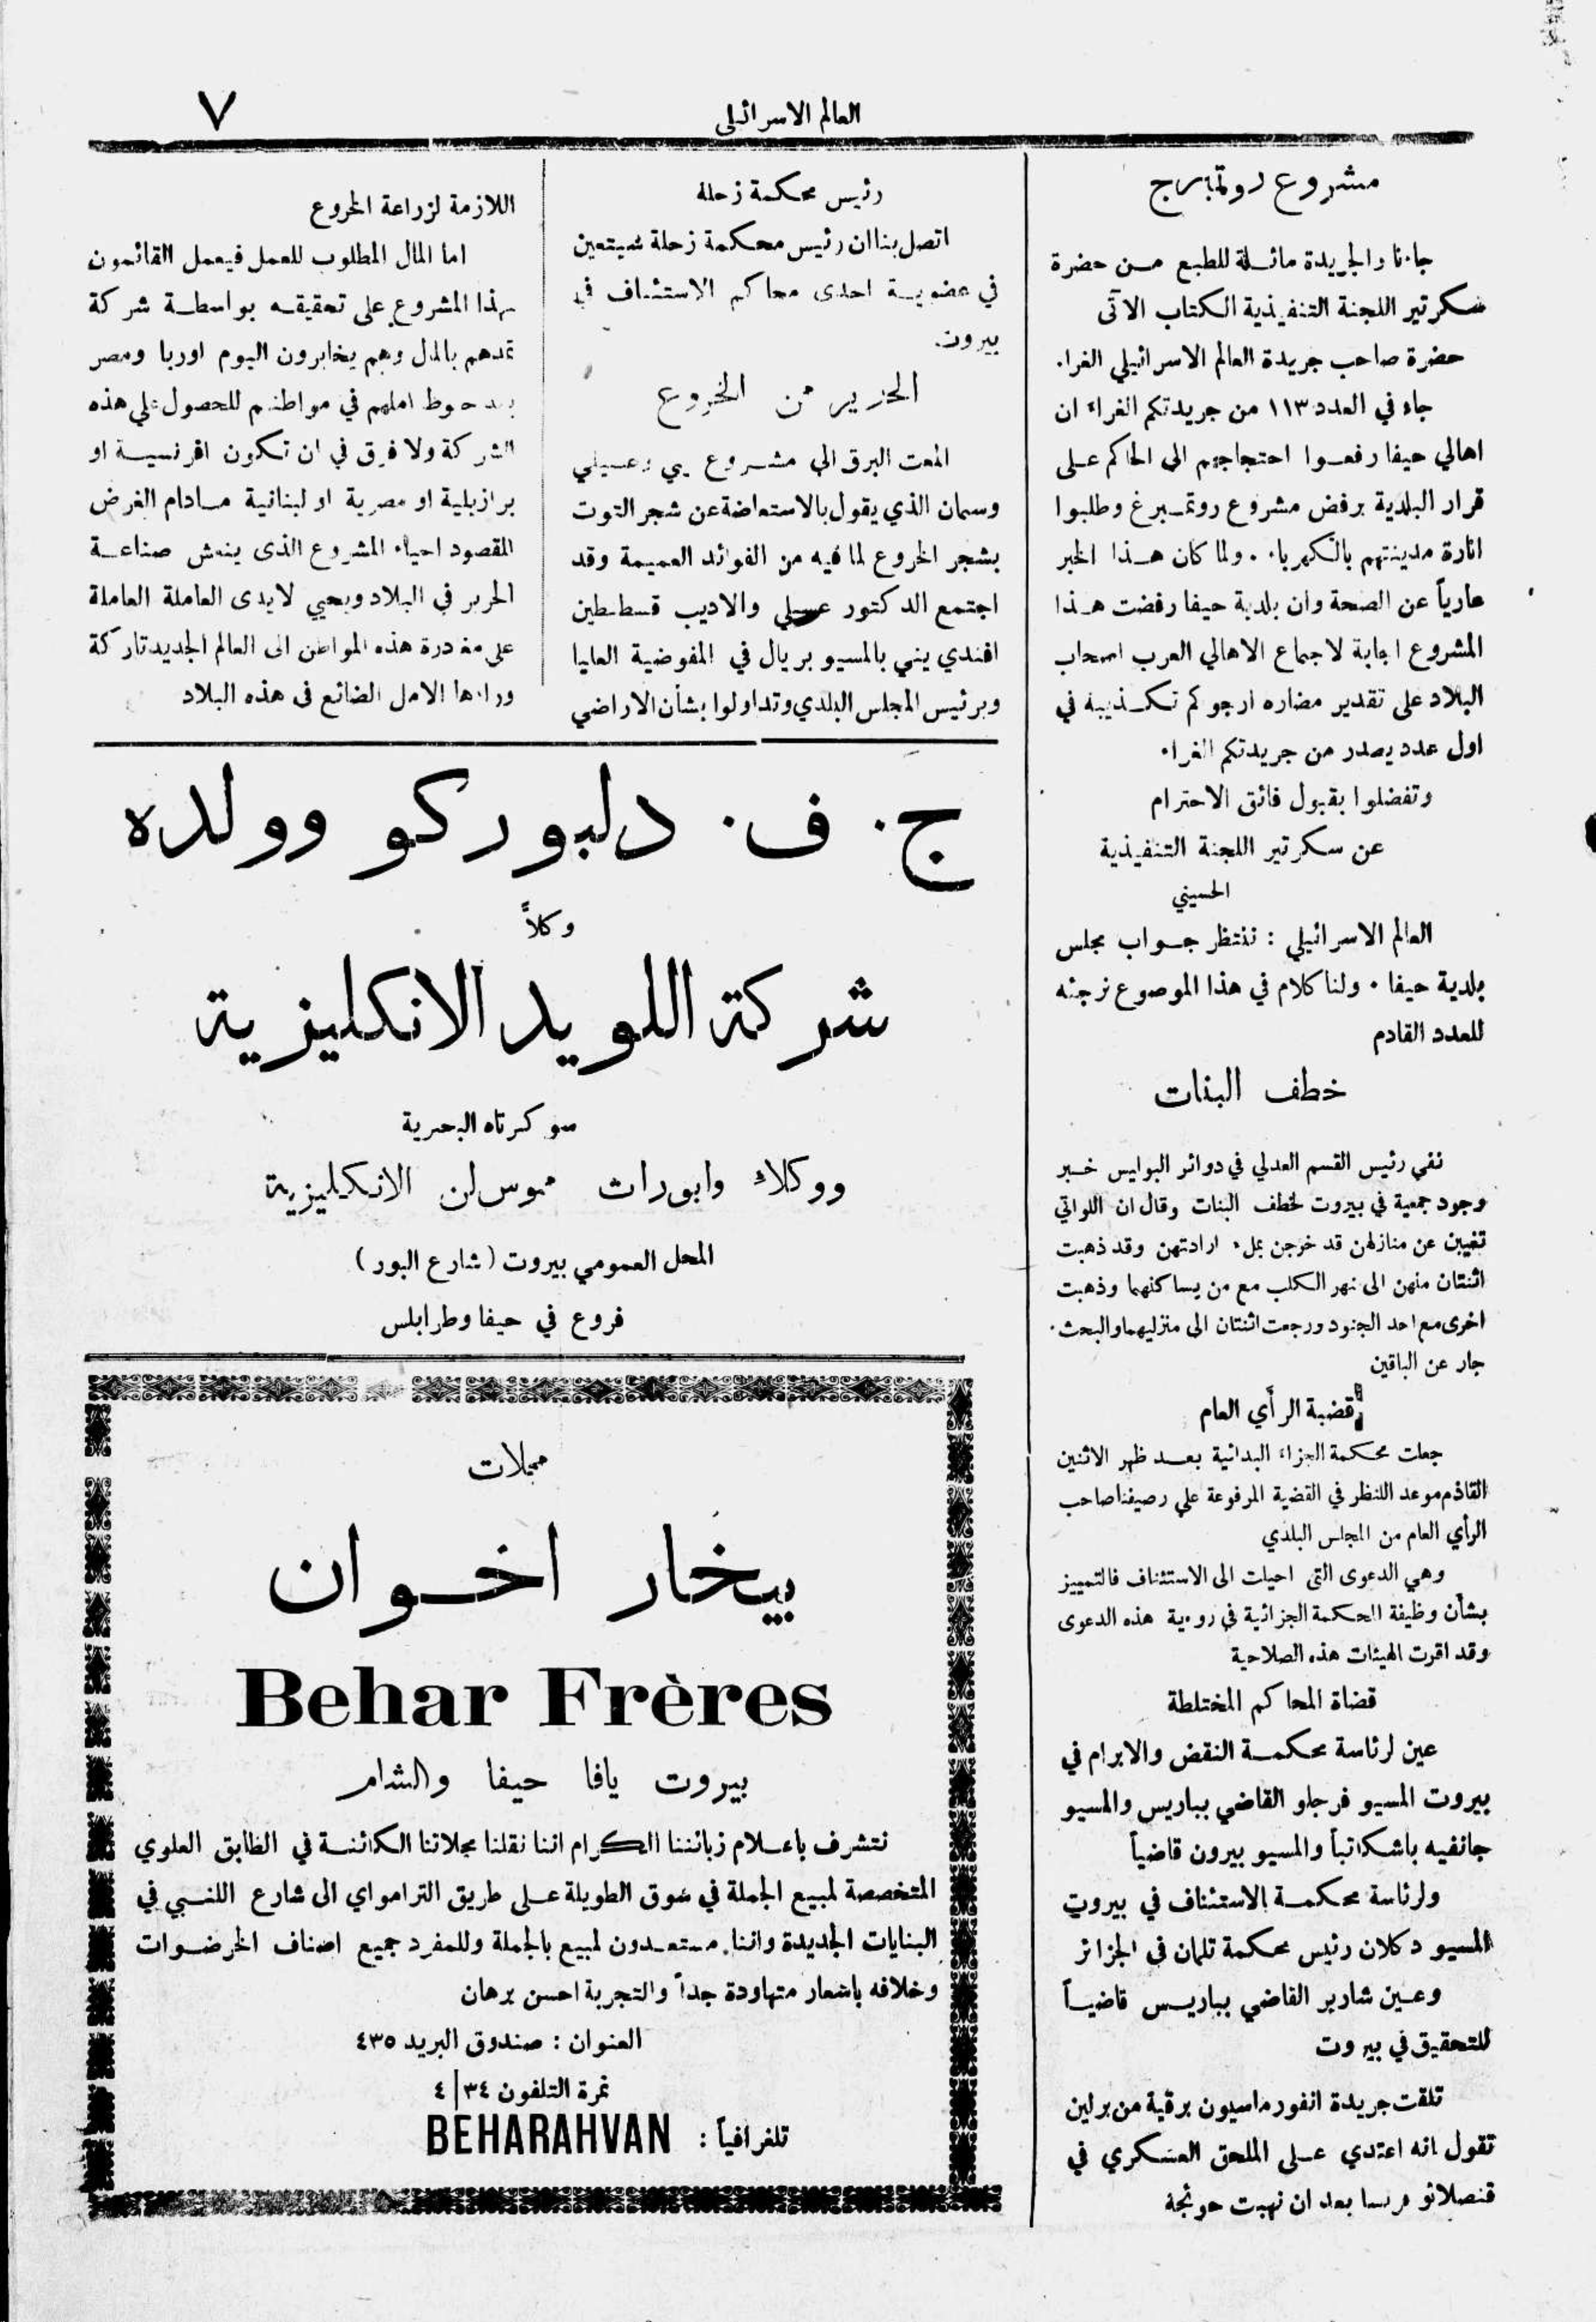 العالم الاسرائيلي
٧
مشروع روتمبرج
جاءنا والجريدة ماثلة للطبع من حضرة
سكرتير اللجنة التنفيذية الكتاب الآتى
حضرة صاحب جريدة العالم الاسرائيلي الغراء
جاء في العدد ١١٣ من جريدتكم الغراء ان
اهالي حيفا رفعوا احتجاجهم الى الحاكم على
قرار البلدية برفض مشروع روتمبرغ وطلبوا
انارة مدينتهم بالكهرباء . ولما كان هذا الخبر
عارياً عن الصحة وان بلدية حيفا رفضت هذا
المشروع اجابة لاجماع الاهالي العرب اصحاب
البلاد على تقدير مضاره ارجوكم تكذيبه في
اول عدد يصدر من جريدتكم الغراء
وتفضلوا بقبول فائق الاحترام
عن سكرتير اللجنة التنفيذية
الحسيني
العالم الاسرائيلي : ننتظر جواب مجلس
بلدية حيفا ٠ ولنا كلام في هذا الموصوع نرجئه
للعدد القادم
خطف البنات
نفى رئيس القسم العدلي في دوائر البوليس خبر
وجود جمعية في بيروت لخطف البنات وقال ان اللواتي
تغيبن عن منازلهن قد خرجن بملء ارادتهن وقد ذهبت
اثنتان منهن الى نهر الكلب مع من يساكنهما وذهبت
اخرى مع احد الجنود ورجعت اثنتان الى منزليهما والبحث
جار عن الباقين
قضية الرأي العام
جعلت محكمة الجزاء البدائية بعد ظهر الاثنين
القادم موعد اللنظر في القضية المرفوعة على رصيفنا صاحب
الرأي العام من المجلس البلدي
وهي الدعوى التى احيلت الى الاستئناف فالتمييز
بشأن وظيفة المحكمة الجزائية في روءية هذه الدعوى
وقد اقرت الهيئات هذه الصلاحية
قضاة المحاكم المختلطة
عين لرئاسة محكمة النقض والابرام في
بيروت المسيو فرجلو القاضي بباريس والمسيو
جانفيه باشكاتباً والمسيو بيرون قاضياً
ولرئاسة محكمة الاستئناف في بيروت
المسيو دكلان رئيس محكمة تلمان في الجزائر
وعين شاربر القاضي بباريس قاضياً
للتحقيق في بيروت
تلقت جريدة انفورماسيون برقية من برلين
تقول انه اعتدي على الملحق العسكري في
قنصلاتو فرنسا بعد ان نهبت
رئيس محكمة زحلة
اتصل بنا ان رئيس محكمة زحلة سيتعين
في عضوية احدى محاكم الاستئناف في
بيروت
الحرير من الخروع
المعت البرق الى مشروع يني وعسيلي
وسمان الذي يقول بالاستعاضة عن شجر التوت
بشجر الخروع لما فيه من الفوائد العميمة وقد
اجتمع الدكتور عسيلي والاديب قسطنطين
افندي يني بالمسيو بريال في المفوضية العليا
وبرئيس المجلس البلدي وتداولوا بشأن الاراضي
اللازمة لزراعة الخروع
اما المال المطلوب للعمل فيعمل القائمون
بهذا المشروع على تحقيقه بواسطة شركة
تمدهم بالمال وهم يخابرون اليوم اوربا ومصر
بعد حبوط املهم في مواطنهم للحصول على هذه
الشركة ولا فرق في ان تكون افرنسية او
برازيلية او مصرية او لبنانية مادام الغرض
المقصود احياء المشروع الذى ينعش صناعة
الحرير في البلاد ويحيي لايدى العاملة العاملة
على مغادرة هذه المواطن الى العالم الجديد تاركة
وراءها الامل الضائع فى هذه البلاد
ج. ف. دلبوركو وولده
وكلاً
شركة اللويد الانكليزية
سوكرتاه البحرية
ووكلاء وابورات موس لن الانكليزية
المحل العمومي بيروت ( شارع البور )
فروع في حيفا وطرابلس
محلات
بيخار اخوان
Behar Frères
بيروت يافا حيفا والشام
نتشرف باعلام زبائننا الكرام اننا نقلنا محلاتنا الكائنة في الطابق العلوي
المتخصصة لمبيع الجملة في سوق الطويلة على طريق التراموای الى شارع اللنبي في
البنايات الجديدة واننا مستعدون لمبيع بالجملة وللمفرد جميع اصناف الخرضوات
وخلافه باسعار متهاودة جداً والتجربة احسن برهان
العنوان : صندوق البريد ٤٣٥
نمرة التلفون ٣٤|٤
تلغرافياً : BEHARAHVAN